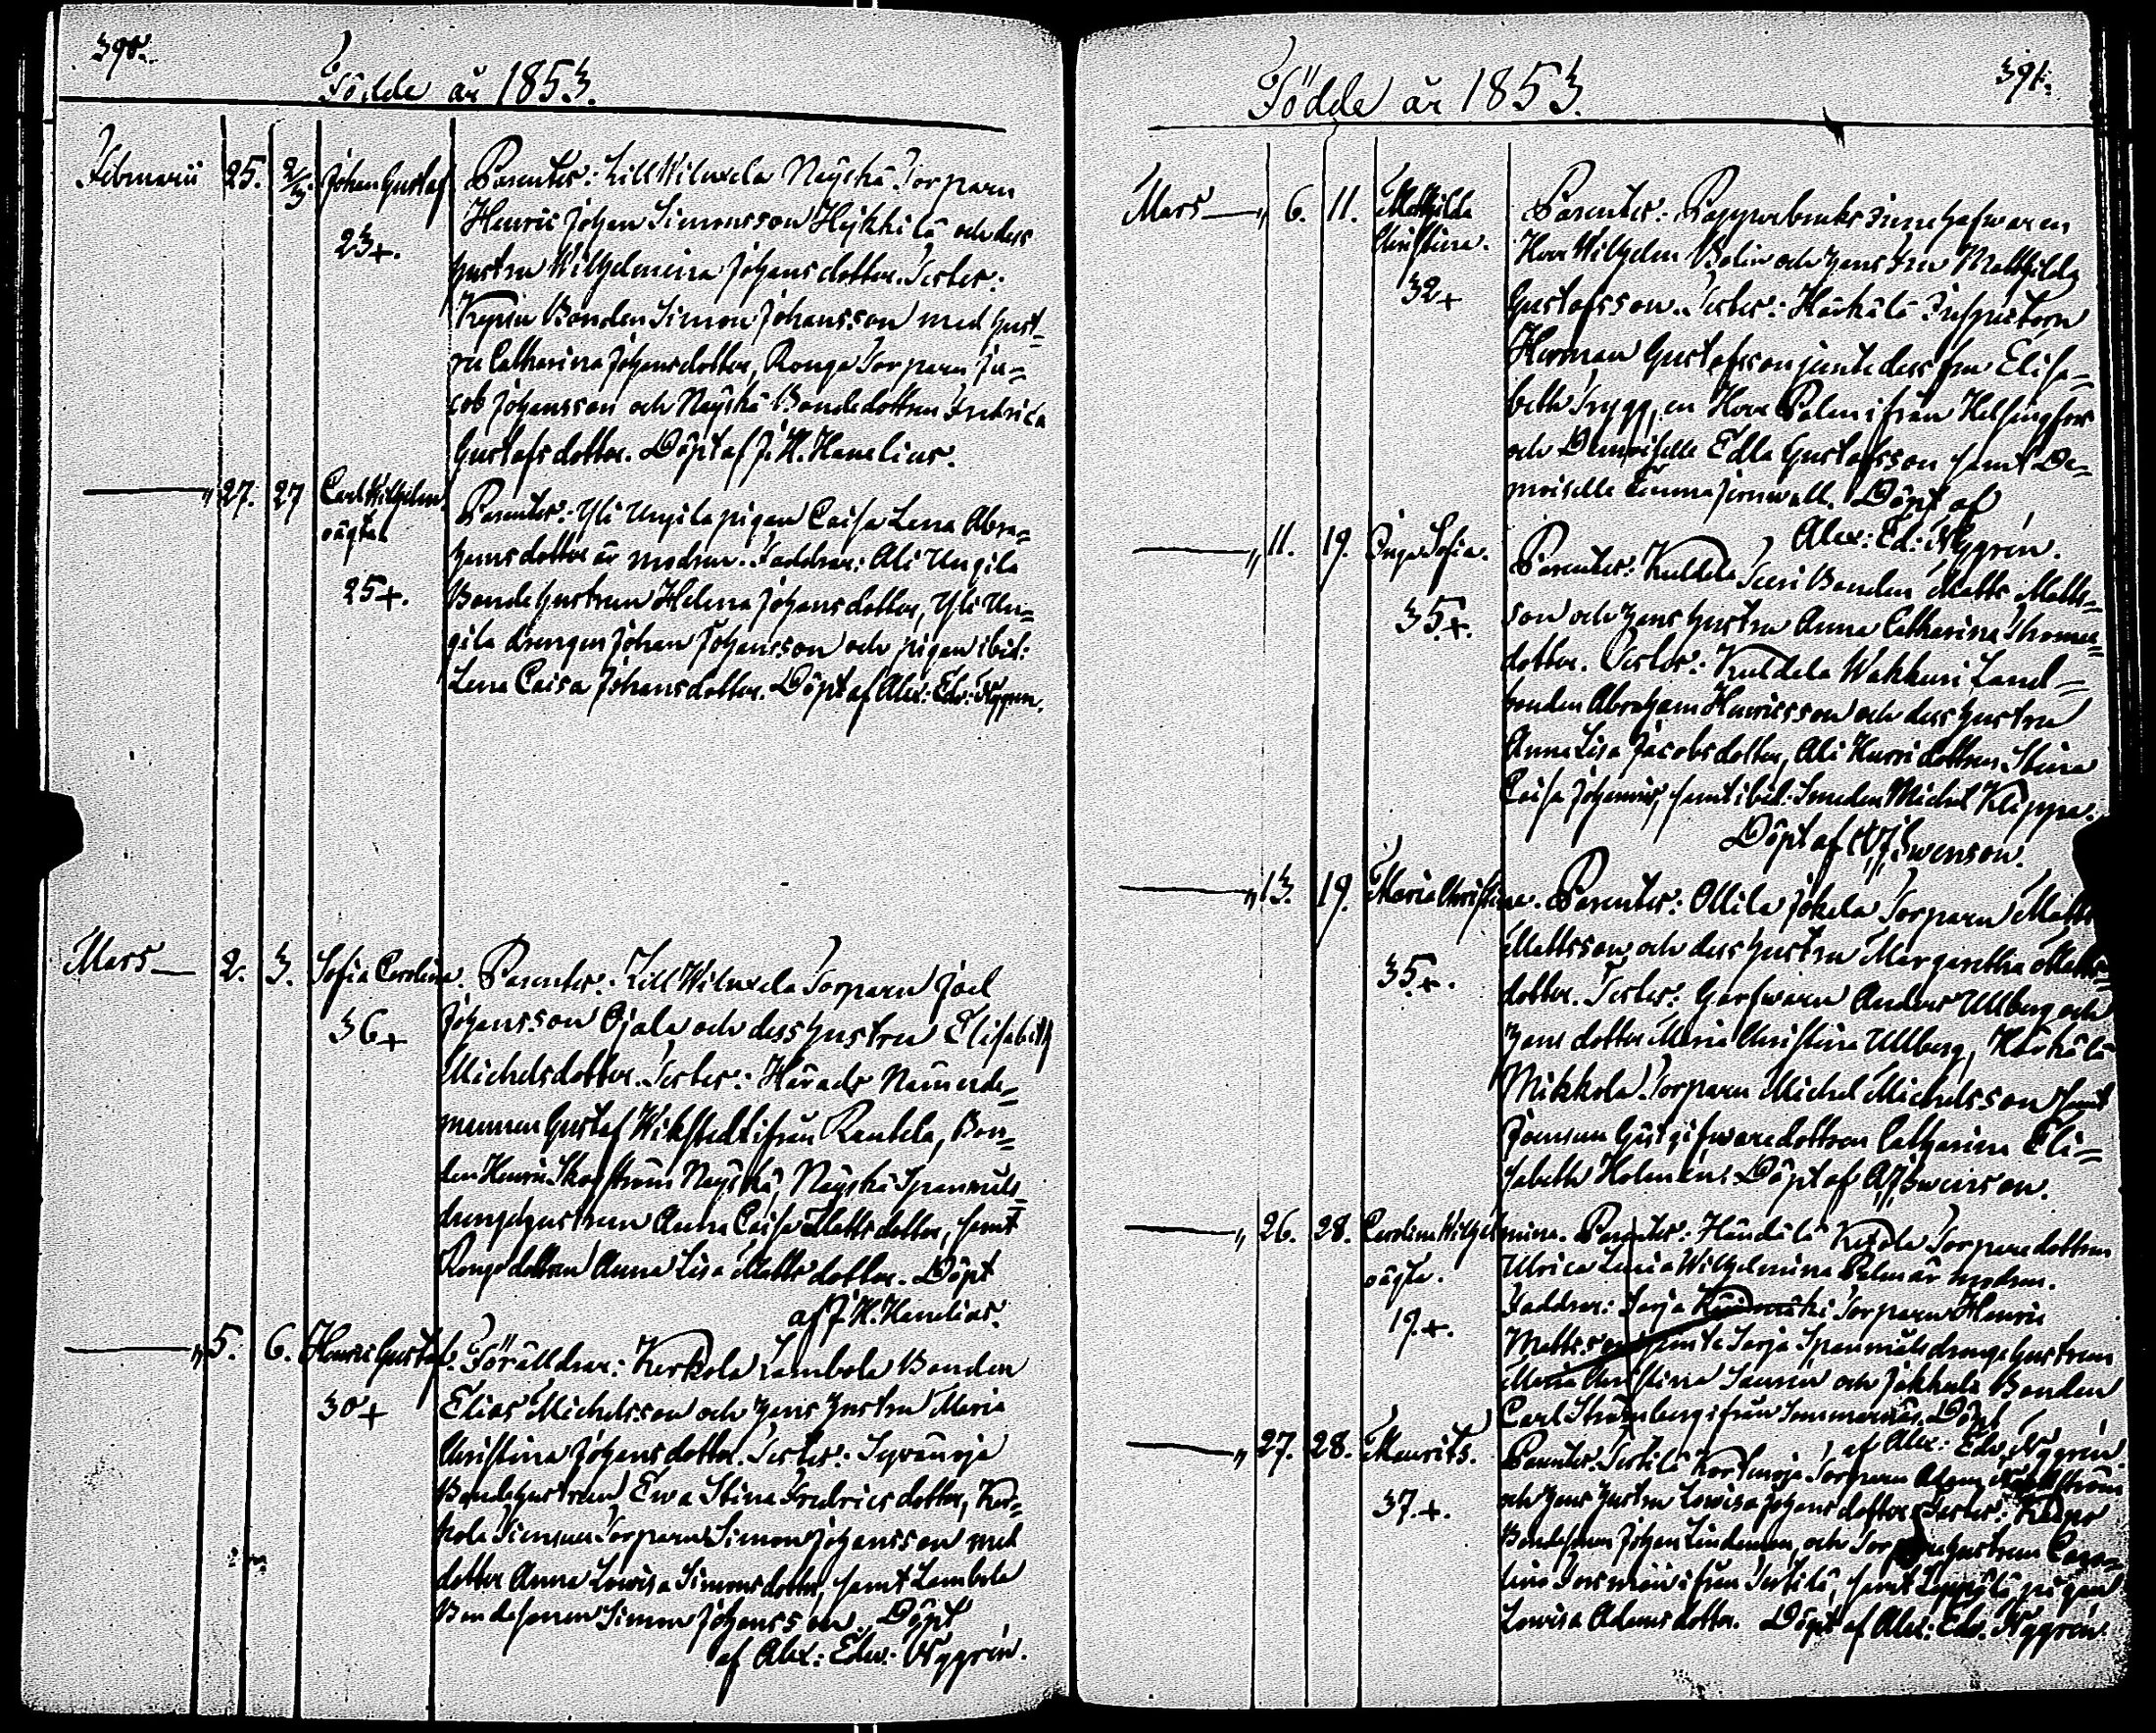 390.
Födde år 1853.
Februarii 25. 2/3. Johan Gustaf Parenter: Lill Wiluxela Näyskä Torparen
23+. Henric Johan Simonsson Heikkilä och dess
hustru Wilhelmina Johansdotter. Testes:
Bonden Simon Johansson med hust=
ru Catharina Johansdotter, Rouga Torparen Ja=
cob Johansson och Näyskä Bondedottren Fredrica
Gustafsdotter. Döpt af J. H. Hanelius.
27. 27 Carl Wilhelm Parenter: Yli Ungila pigan Caisa Lena Abra=
oägta hamsdotter är modren. Faddrar: Ali Ungila
25+. Bondehustrun Helena Johansdotter, Yli Un=
gila drengen Johan Johansson och pigan ibid:
Lena Caisa Johansdotter. Döpt af Alex: Edv: Nygren.
Mars 2. 3. Sofia Carolina. Parenter: Lill Wiluxela Torparen Joel
36+ Johansson Ojala och dess hustru Elisabeth
Michelsdotter. Testes: Härads Nämnde=
mannen Gustaf Wikstedt ifrån Rautela, Bon=
den Henric Skogström Näyskä, Näyskä Spanmåls
drengehustrun Anna Caisa Mattsdotter, samt
Rouga dottren Anna Lisa Mattsdotter. Döpt
af J. H. Hanelius.
5. 6. Henric Gustaf. Föräldrar: Kerkola Lambola Bonden
30+ Elias Michelsson och hans hustru Maria
Christina Johansdotter. Testes: Syvänoja
Bondehustrun Ewa Stina Fredricsdotter, Ker=
kola Torparen Simon Johansson med
dotter Anna Lowisa Simonsdotter, samt Lambola
Bondesonen Simon Johansson. Döpt
af Alex: Edw: Nygrén.
391.
Födde år 1853.
Mars 6. 11. Mathilda Parenter: Pappersbruks innehafwaren
Christina. Herr Wilhelm Bolin och hans fru Mathilda
32+ Gustafsson. Testes: Härkälä Inspectorn
Herman Gustafsson jemte dess fru Elisa=
beth Trygg, en Herr Palen ifrån Helsingfors
och Demoiselle Edla Gustafsson samt De=
moiselle Emma Jernwall. Döpt af
Alex: Ed: Nygrén.
11. 19. Inga Sofia. Parenter: Kuldela Bonden Matts Matts=
35+. son och hans hustru Anna Catharina Thomas=
dotter. Testes: Kuldela Wakkuri Land=
bonden Abraham Henricsson och dess hustru
Anna Lisa Jacobsdotter, Ali Hurri dottren Stina
Caisa samt ibid: Smeden Michel Klippa.
Döpt af Swenson.
13. 19. Maria Christina. Parenter: Ollila Jokela Torparen Matts
35+. Mattsson och dess hustru Margaretha Matts=
dotter. Testes: Garfwaren Anders Ullberg och
hans dotter Maria Christina Ullberg, Härkälä
Mikkola Torparen Michel Michelsson samt
Gästgifwaredottren Catharina Eli=
sabeth Holmén. Döpt af Swenson.
26. 28. Carolina Wilhelmina. Parenter: Händälä Torparedottren
oägta. Ulrica Wilhelmina Palm är modren.
19.+. Faddrar: Sarja Torparen Henric
Mattsson jemte Sarja Spanmålsdrengehustrun
Maria Christina och Jakkula Bonden
Carl Strömberg ifrån Sommarnäs. Döpt
af Alex: Edw: Nygrén.
27. 28. Maurits. Parenter: Torparen
37.+. och hans hustru Lowisa Johansdotter. Testes:
Bondesonen Johan Lindeman, och Caro=
lina ifrån samt pigan
Lowisa Adamsdotter. Döpt af Alex: Edv. Nygrén.